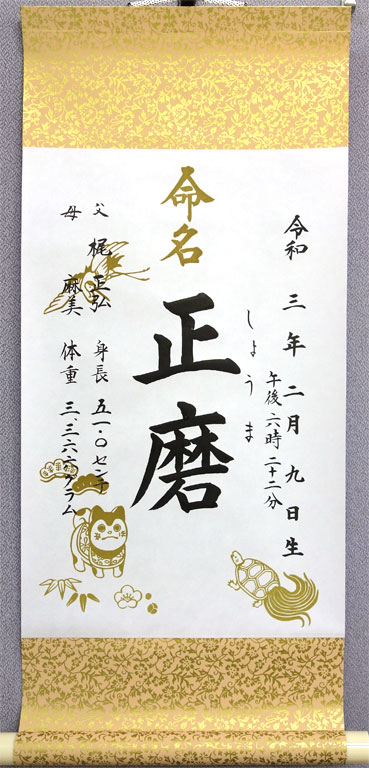 令和三年二月九日生
午後六時二十二分
しょうま
命名
正磨
父 梶 正弘 身長 五一・〇センチ
母 麻美 体重 三、三六六グラム